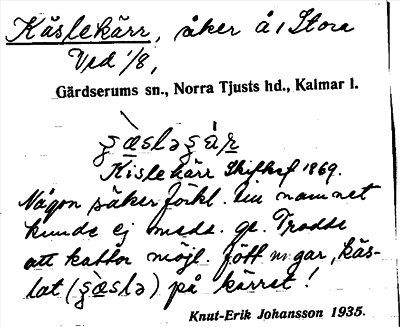 Käslekärr, åker å 1 Stora
Ved 1/8,
Gärdserums sn., Norra Tjusts hd., Kalmar l.
Kislekärr Skifksf 1869.
Någon säker förkl. till namnet
kunde ej medd. ge. Trodde
att kattor möjl. fött ungar, käs-
lat (ʂæslə) på kärret!
Knut-Erik Johansson 1935.